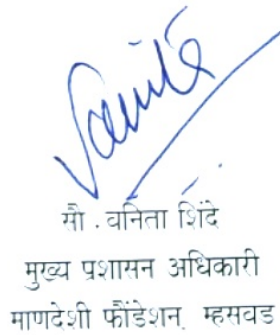 सौ . वनिता शिंदे
मुख्य प्रशासन अधिकारी
माणदेशी फौंडेशन, म्हसवड